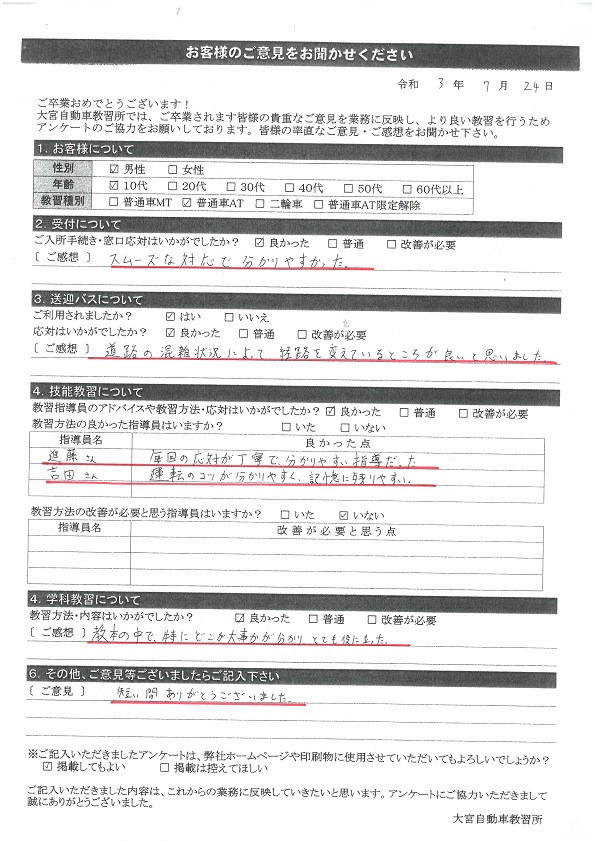 お客様のご意見をお聞かせください
令和 3 年 7 月 24 日
ご卒業おめでとうございます！
大宮自動車教習所では、ご卒業されます皆様の貴重なご意見を業務に反映し、より良い教習を行うため
アンケートのご協力をお願いしております。皆様の率直なご意見・ご感想をお聞かせ下さい。
1. お客様について
性別 ☑ 男性 □ 女性
年齢 ☑ 10代 □ 20代 □ 30代 □ 40代 □ 50代 □ 60代以上
教習種別 □ 普通車MT ☑ 普通車AT □ 二輪車 □ 普通車AT限定解除
2. 受付について
ご入所手続き・窓口応対はいかがでしたか？ ☑ 良かった □ 普通 □ 改善が必要
［ ご感想 ］ スムーズな対応で分かりやすかった。
3. 送迎バスについて
ご利用されましたか？ ☑ はい □ いいえ
応対はいかがでしたか？ ☑ 良かった □ 普通 □ 改善が必要
［ ご感想 ］ 道路の混雑状況によって経路を変えているところが良いと思いました。
4. 技能教習について
教習指導員のアドバイスや教習方法・応対はいかがでしたか？ ☑ 良かった □ 普通 □ 改善が必要
教習方法の良かった指導員はいますか？ □ いた □ いない
指導員名 良かった点
進藤さん 毎回の応対が丁寧で、分かりやすい指導だった
吉田さん 運転のコツが分かりやすく、記憶に残りやすい。
教習方法の改善が必要と思う指導員はいますか？ □ いた ☑ いない
指導員名 改善が必要と思う点
4. 学科教習について
教習方法・内容はいかがでしたか？ ☑ 良かった □ 普通 □ 改善が必要
［ ご感想 ］ 教本の中で、特にどこが大事かが分かりとても役に立った。
6. その他、ご意見等ございましたらご記入下さい
［ ご意見 ］ 短い間ありがとうございました。
※ご記入いただきましたアンケートは、弊社ホームページや印刷物に使用させていただいてもよろしいでしょうか？
☑ 掲載してもよい □ 掲載は控えてほしい
ご記入いただきました内容は、これからの業務に反映していきたいと思います。アンケートにご協力いただきまして
誠にありがとうございました。
大宮自動車教習所